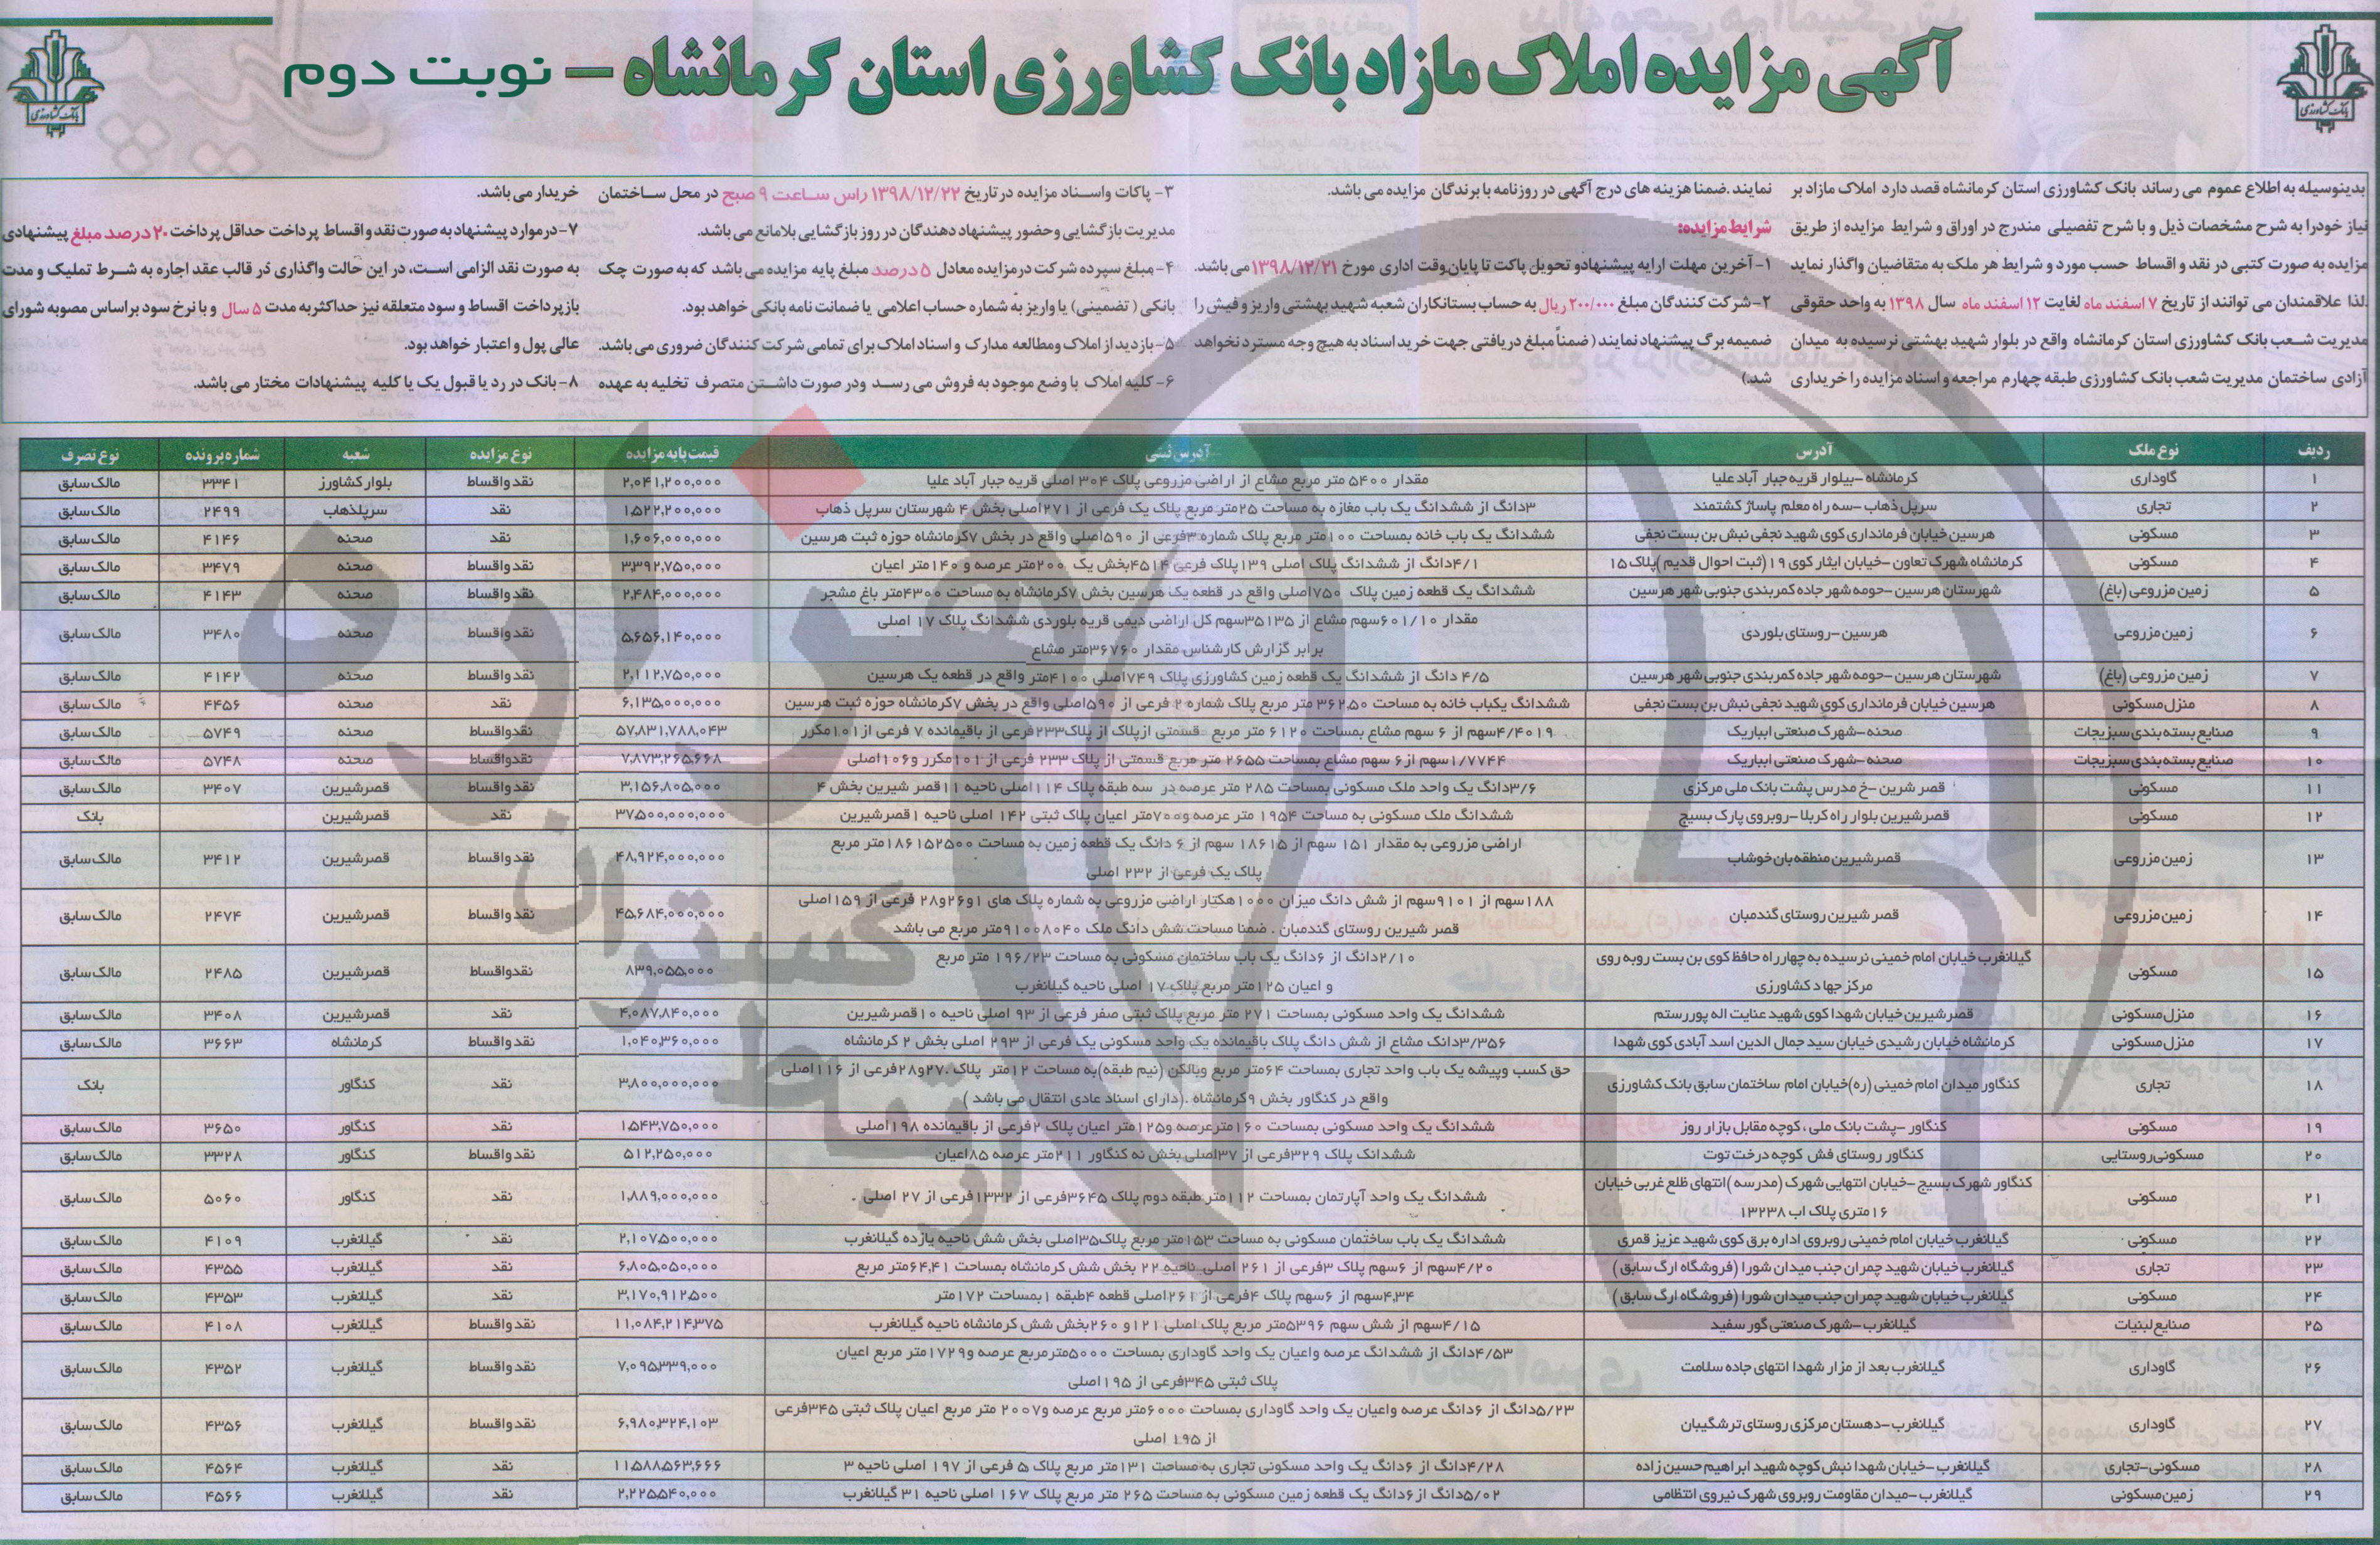 آگهی مزایده املاک مازاد بانک کشاورزی استان کرمانشاه – نوبت دوم
بانک کشاورزی
بانک کشاورزی
بدینوسیله به اطلاع عموم می رساند بانک کشاورزی استان کرمانشاه قصد دارد املاک مازاد بر
نیاز خودرا به شرح مشخصات ذیل و با شرح تفصیلی مندرج در اوراق و شرایط مزایده از طریق
مزایده به صورت کتبی در نقد و اقساط حسب مورد و شرایط هر ملک به متقاضیان واگذار نماید
لذا علاقمندان می توانند از تاریخ ۷ اسفند ماه لغایت ۱۲ اسفند ماه سال ۱۳۹۸ به واحد حقوقی
مدیریت شعب بانک کشاورزی استان کرمانشاه واقع در بلوار شهید بهشتی نرسیده به میدان
آزادی ساختمان مدیریت شعب بانک کشاورزی طبقه چهارم مراجعه و اسناد مزایده را خریداری
نمایند .ضمنا هزینه های درج آگهی در روزنامه با برندگان مزایده می باشد.
شرایط مزایده:
۱- آخرین مهلت ارایه پیشنهادو تحویل پاکت تا پایان وقت اداری مورخ ۱۳۹۸/۱۲/۲۱ می باشد.
۲- شرکت کنندگان مبلغ ۲۰۰/۰۰۰ ریال به حساب بستانکاران شعبه شهید بهشتی واریز و فیش را
ضمیمه برگ پیشنهاد نمایند( ضمناً مبلغ دریافتی جهت خرید اسناد به هیچ وجه مسترد نخواهد
شد.)
۳- پاکات واسناد مزایده در تاریخ ۱۳۹۸/۱۲/۲۲ راس ساعت ۹ صبح در محل ساختمان
مدیریت باز گشایی وحضور پیشنهاد دهندگان در روز بازگشایی بلامانع می باشد.
۴- مبلغ سپرده شرکت درمزایده معادل ۵ درصد مبلغ پایه مزایده می باشد که به صورت چک
بانکی ( تضمینی) یا واریز به شماره حساب اعلامی یا ضمانت نامه بانکی خواهد بود.
۵- بازدید از املاک ومطالعه مدارک و اسناد املاک برای تمامی شرکت کنندگان ضروری می باشد.
۶- کلیه املاک با وضع موجود به فروش می رسد ودر صورت داشتن متصرف تخلیه به عهده
خریدار می باشد.
۷- درموارد پیشنهاد به صورت نقد و اقساط پرداخت حداقل پرداخت ۲۰ درصد مبلغ پیشنهادی
به صورت نقد الزامی است، در این حالت واگذاری در قالب عقد اجاره به شرط تملیک و مدت
بازپرداخت اقساط و سود متعلقه نیز حداکثر به مدت ۵ سال و با نرخ سود براساس مصوبه شورای
عالی پول و اعتبار خواهد بود.
۸- بانک در رد یا قبول یک یا کلیه پیشنهادات مختار می باشد.
ردیف نوع ملک آدرس آدرس ثبتی قیمت پایه مزایده نوع مزایده شعبه شماره پرونده نوع تصرف
۱ گاوداری کرمانشاه –بیلوار قریه جبار آباد علیا مقدار ۵۴۰۰ متر مربع مشاع از اراضی مزروعی پلاک ۳۰۴ اصلی قریه جبار آباد علیا ۲,۰۴۱,۲۰۰,۰۰۰ نقدواقساط بلوار کشاورز ۳۳۴۱ مالک سابق
۲ تجاری سرپل ذهاب –سه راه معلم پاساژ کشتمند ۳دانگ از ششدانگ یک باب مغازه به مساحت ۲۵متر مربع پلاک یک فرعی از ۲۷۱اصلی بخش ۴ شهرستان سرپل ذهاب ۱,۵۲۲,۲۰۰,۰۰۰ نقد سرپلذهاب ۲۴۹۹ مالک سابق
۳ مسکونی هرسین خیابان فرمانداری کوی شهید نجفی نبش بن بست نجفی ششدانگ یک باب خانه بمساحت ۱۰۰متر مربع پلاک شماره ۳فرعی از ۵۹۰اصلی واقع در بخش ۷کرمانشاه حوزه ثبت هرسین ۱,۶۰۶,۰۰۰,۰۰۰ نقد صحنه ۴۱۴۶ مالک سابق
۴ مسکونی کرمانشاه شهرک تعاون –خیابان ایثار کوی ۱۹(ثبت احوال قدیم )پلاک ۱۵ ۴/۱دانگ از ششدانگ پلاک اصلی ۱۳۹پلاک فرعی ۴۵۱۴بخش یک ۲۰۰متر عرصه و ۱۴۰متر اعیان ۳,۳۹۲,۷۵۰,۰۰۰ نقدواقساط صحنه ۳۴۷۹ مالک سابق
۵ زمین مزروعی (باغ) شهرستان هرسین –حومه شهر جاده کمربندی جنوبی شهر هرسین ششدانگ یک قطعه زمین پلاک ۷۵۰اصلی واقع در قطعه یک هرسین بخش ۷کرمانشاه به مساحت ۴۳۰۰متر باغ مشجر ۲,۴۸۴,۰۰۰,۰۰۰ نقدواقساط صحنه ۴۱۴۳ مالک سابق
۶ زمین مزروعی هرسین –روستای بلوردی مقدار ۶۰۱/۱۰سهم مشاع از ۳۵۱۳۵سهم کل اراضی دیمی قریه بلوردی ششدانگ پلاک ۱۷ اصلی ۵,۶۵۶,۱۴۰,۰۰۰ نقدواقساط صحنه ۳۴۸۰ مالک سابق
برابر گزارش کارشناس مقدار ۳۶۷۶۰متر مشاع
۷ زمین مزروعی (باغ) شهرستان هرسین –حومه شهر جاده کمربندی جنوبی شهر هرسین ۴/۵ دانگ از ششدانگ یک قطعه زمین کشاورزی پلاک ۷۴۹اصلی ۴۱۰۰متر واقع در قطعه یک هرسین ۲,۱۱۲,۷۵۰,۰۰۰ نقدواقساط صحنه ۴۱۴۲ مالک سابق
۸ منزل مسکونی هرسین خیابان فرمانداری کوی شهید نجفی نبش بن بست نجفی ششدانگ یکباب خانه به مساحت ۳۶۲,۵۰ متر مربع پلاک شماره ۲ فرعی از ۵۹۰اصلی واقع در بخش ۷کرمانشاه حوزه ثبت هرسین ۶,۱۳۵,۰۰۰,۰۰۰ نقد صحنه ۴۴۵۶ مالک سابق
۹ صنایع بسته بندی سبزیجات صحنه –شهرک صنعتی ابباریک ۴/۴۰۱۹سهم از ۶ سهم مشاع بمساحت ۶۱۲۰ متر مربع قسمتی ازپلاک از پلاک۲۳۳فرعی از باقیمانده ۷ فرعی از۱۰۱مکرر ۵۷,۸۳۱,۷۸۸,۰۴۳ نقدواقساط صحنه ۵۷۴۹ مالک سابق
۱۰ صنایع بسته بندی سبزیجات صحنه –شهرک صنعتی ابباریک ۱/۷۷۴۴سهم از۶ سهم مشاع بمساحت ۲۶۵۵ متر مربع قسمتی از پلاک ۲۳۳ فرعی از ۱۰۱مکرر و۱۰۶اصلی ۷,۸۷۳,۲۶۵,۶۶۸ نقدواقساط صحنه ۵۷۴۸ مالک سابق
۱۱ مسکونی قصر شرین –خ مدرس پشت بانک ملی مرکزی ۳/۶دانگ یک واحد ملک مسکونی بمساحت ۲۸۵ متر عرصه در سه طبقه پلاک ۱۱۴اصلی ناحیه ۱۱قصر شیرین بخش ۴ ۳,۱۵۶,۸۰۵,۰۰۰ نقدواقساط قصرشیرین ۳۴۰۷ مالک سابق
۱۲ مسکونی قصرشیرین بلوار راه کربلا –روبروی پارک بسیج ششدانگ ملک مسکونی به مساحت ۱۹۵۴ متر عرصه و۷۰۰متر اعیان پلاک ثبتی ۱۴۲ اصلی ناحیه ۱قصرشیرین ۳۷,۵۰۰,۰۰۰,۰۰۰ نقد قصرشیرین بانک
۱۳ زمین مزروعی قصرشیرین منطقه بان خوشاب اراضی مزروعی به مقدار ۱۵۱ سهم از ۱۸۶۱۵ سهم از ۶ دانگ یک قطعه زمین به مساحت ۱۸۶۱۵۲۵۰۰متر مربع ۴۸,۹۲۴,۰۰۰,۰۰۰ نقدواقساط قصرشیرین ۳۴۱۲ مالک سابق
پلاک یک فرعی از ۲۳۲ اصلی
۱۴ زمین مزروعی قصر شیرین روستای گندمبان ۱۸۸سهم از ۹۱۰۱سهم از شش دانگ میزان ۱۰۰۰هکتار اراضی مزروعی به شماره پلاک های ۱و۲۶و۲۸ فرعی از ۱۵۹اصلی ۴۵,۶۸۴,۰۰۰,۰۰۰ نقدواقساط قصرشیرین ۲۴۷۴ مالک سابق
قصر شیرین روستای گندمبان . ضمنا مساحت شش دانگ ملک ۹۱۰۰۸۰۴۰متر مربع می باشد
۱۵ مسکونی گیلانغرب خیابان امام خمینی نرسیده به چهارراه حافظ کوی بن بست روبه روی ۲/۱۰دانگ از ۶دانگ یک باب ساختمان مسکونی به مساحت ۱۹۶/۲۳ متر مربع ۸۳۹,۰۵۵,۰۰۰ نقدواقساط قصرشیرین ۲۴۸۵ مالک سابق
مرکز جهاد کشاورزی و اعیان ۱۲۵متر مربع پلاک ۱۷ اصلی ناحیه گیلانغرب
۱۶ منزل مسکونی قصرشیرین خیابان شهدا کوی شهید عنایت اله پوررستم ششدانگ یک واحد مسکونی بمساحت ۲۷۱ متر مربع پلاک ثبتی صفر فرعی از ۹۳ اصلی ناحیه ۱۰قصرشیرین ۴,۰۸۷,۸۴۰,۰۰۰ نقد قصرشیرین ۳۴۰۸ مالک سابق
۱۷ منزل مسکونی کرمانشاه خیابان رشیدی خیابان سید جمال الدین اسد آبادی کوی شهدا ۳/۳۵۶دانک مشاع از شش دانگ پلاک باقیمانده یک واحد مسکونی یک فرعی از ۲۹۳ اصلی بخش ۲ کرمانشاه ۱,۰۴۰,۳۶۰,۰۰۰ نقدواقساط کرمانشاه ۳۶۶۳ مالک سابق
۱۸ تجاری کنگاور میدان امام خمینی (ره)خیابان امام ساختمان سابق بانک کشاورزی حق کسب وپیشه یک باب واحد تجاری بمساحت ۶۴متر مربع وبالکن (نیم طبقه)به مساحت ۱۲متر پلاک ۲۷و۲۸فرعی از ۱۱۶اصلی ۳,۸۰۰,۰۰۰,۰۰۰ نقد کنگاور بانک
واقع در کنگاور بخش ۹کرمانشاه .(دارای اسناد عادی انتقال می باشد )
۱۹ مسکونی کنگاور –پشت بانک ملی ، کوچه مقابل بازار روز ششدانگ یک واحد مسکونی بمساحت ۱۶۰مترعرصه و۱۲۵متر اعیان پلاک ۲فرعی از باقیمانده ۱۹۸اصلی ۱,۵۴۳,۷۵۰,۰۰۰ نقد کنگاور ۳۶۵۰ مالک سابق
۲۰ مسکونی روستایی کنگاور روستای فش کوچه درخت توت ششدانک پلاک ۳۲۹فرعی از ۳۷اصلی بخش نه کنگاور ۲۱۱متر عرصه ۸۵اعیان ۵۱۲,۲۵۰,۰۰۰ نقدواقساط کنگاور ۳۳۲۸ مالک سابق
۲۱ مسکونی کنگاور شهرک بسیج –خیابان انتهایی شهرک (مدرسه )انتهای ظلع غربی خیابان ششدانگ یک واحد آپارتمان بمساحت ۱۱۲متر طبقه دوم پلاک ۳۶۴۵فرعی از ۱۳۳۲فرعی از ۲۷ اصلی . ۱,۸۸۹,۰۰۰,۰۰۰ نقد کنگاور ۵۰۶۰ مالک سابق
۱۶متری پلاک اب ۱۳۲۳۸
۲۲ مسکونی گیلانغرب خیابان امام خمینی روبروی اداره برق کوی شهید عزیز قمری ششدانگ یک باب ساختمان مسکونی به مساحت ۱۵۳متر مربع پلاک۳۵اصلی بخش شش ناحیه یازده گیلانغرب ۲,۱۰۷,۵۰۰,۰۰۰ نقد گیلانغرب ۴۱۰۹ مالک سابق
۲۳ تجاری گیلانغرب خیابان شهید چمران جنب میدان شورا (فروشگاه ارگ سابق ) ۴/۲۰سهم از ۶سهم پلاک ۳فرعی از ۲۶۱ اصلی ناحیه ۲۲ بخش شش کرمانشاه بمساحت ۶۴,۴۱متر مربع ۶,۸۰۵,۰۵۰,۰۰۰ نقد گیلانغرب ۴۳۵۵ مالک سابق
۲۴ مسکونی گیلانغرب خیابان شهید چمران جنب میدان شورا (فروشگاه ارگ سابق ) ۴,۳۴سهم از ۶سهم پلاک ۴فرعی از ۲۶۱اصلی قطعه ۴طبقه ۱بمساحت ۱۷۲متر ۳,۱۷۰,۹۱۲,۵۰۰ نقد گیلانغرب ۴۳۵۳ مالک سابق
۲۵ صنایع لبنیات گیلانغرب –شهرک صنعتی گور سفید ۴/۱۵سهم از شش سهم ۵۳۹۶متر مربع پلاک اصلی ۱۲۱و ۲۶۰بخش شش کرمانشاه ناحیه گیلانغرب ۱۱,۰۸۴,۲۱۴,۳۷۵ نقدواقساط گیلانغرب ۴۱۰۸ مالک سابق
۲۶ گاوداری گیلانغرب بعد از مزار شهدا انتهای جاده سلامت ۴/۵۳دانگ از ششدانگ عرصه واعیان یک واحد گاوداری بمساحت ۵۰۰۰مترمربع عرصه و۱۷۲۹متر مربع اعیان ۷,۰۹۵,۳۳۹,۰۰۰ نقدواقساط گیلانغرب ۴۳۵۲ مالک سابق
پلاک ثبتی ۳۴۵فرعی از ۱۹۵اصلی
۲۷ گاوداری گیلانغرب –دهستان مرکزی روستای ترشگیبان ۵/۲۳دانگ از ۶دانگ عرصه واعیان یک واحد گاوداری بمساحت ۶۰۰۰متر مربع عرصه و۲۰۰۷ متر مربع اعیان پلاک ثبتی ۳۴۵فرعی ۶,۹۸۰,۳۲۴,۱۰۳ نقدواقساط گیلانغرب ۴۳۵۶ مالک سابق
از ۱۹۵ اصلی
۲۸ مسکونی-تجاری گیلانغرب –خیابان شهدا نبش کوچه شهید ابراهیم حسین زاده ۴/۲۸دانگ از ۶دانگ یک واحد مسکونی تجاری به مساحت ۱۳۱متر مربع پلاک ۵ فرعی از ۱۹۷ اصلی ناحیه ۳ ۱۱,۵۸۸,۵۶۳,۶۶۶ نقد گیلانغرب ۴۵۶۴ مالک سابق
۲۹ زمین مسکونی گیلانغرب –میدان مقاومت روبروی شهرک نیروی انتظامی ۵/۰۲دانگ از۶دانگ یک قطعه زمین مسکونی به مساحت ۲۶۵ متر مربع پلاک ۱۶۷ اصلی ناحیه ۳۱ گیلانغرب ۲,۲۲۵,۵۴۰,۰۰۰ نقد گیلانغرب ۴۵۶۶ مالک سابق
هزاره
گستران
ارتباط